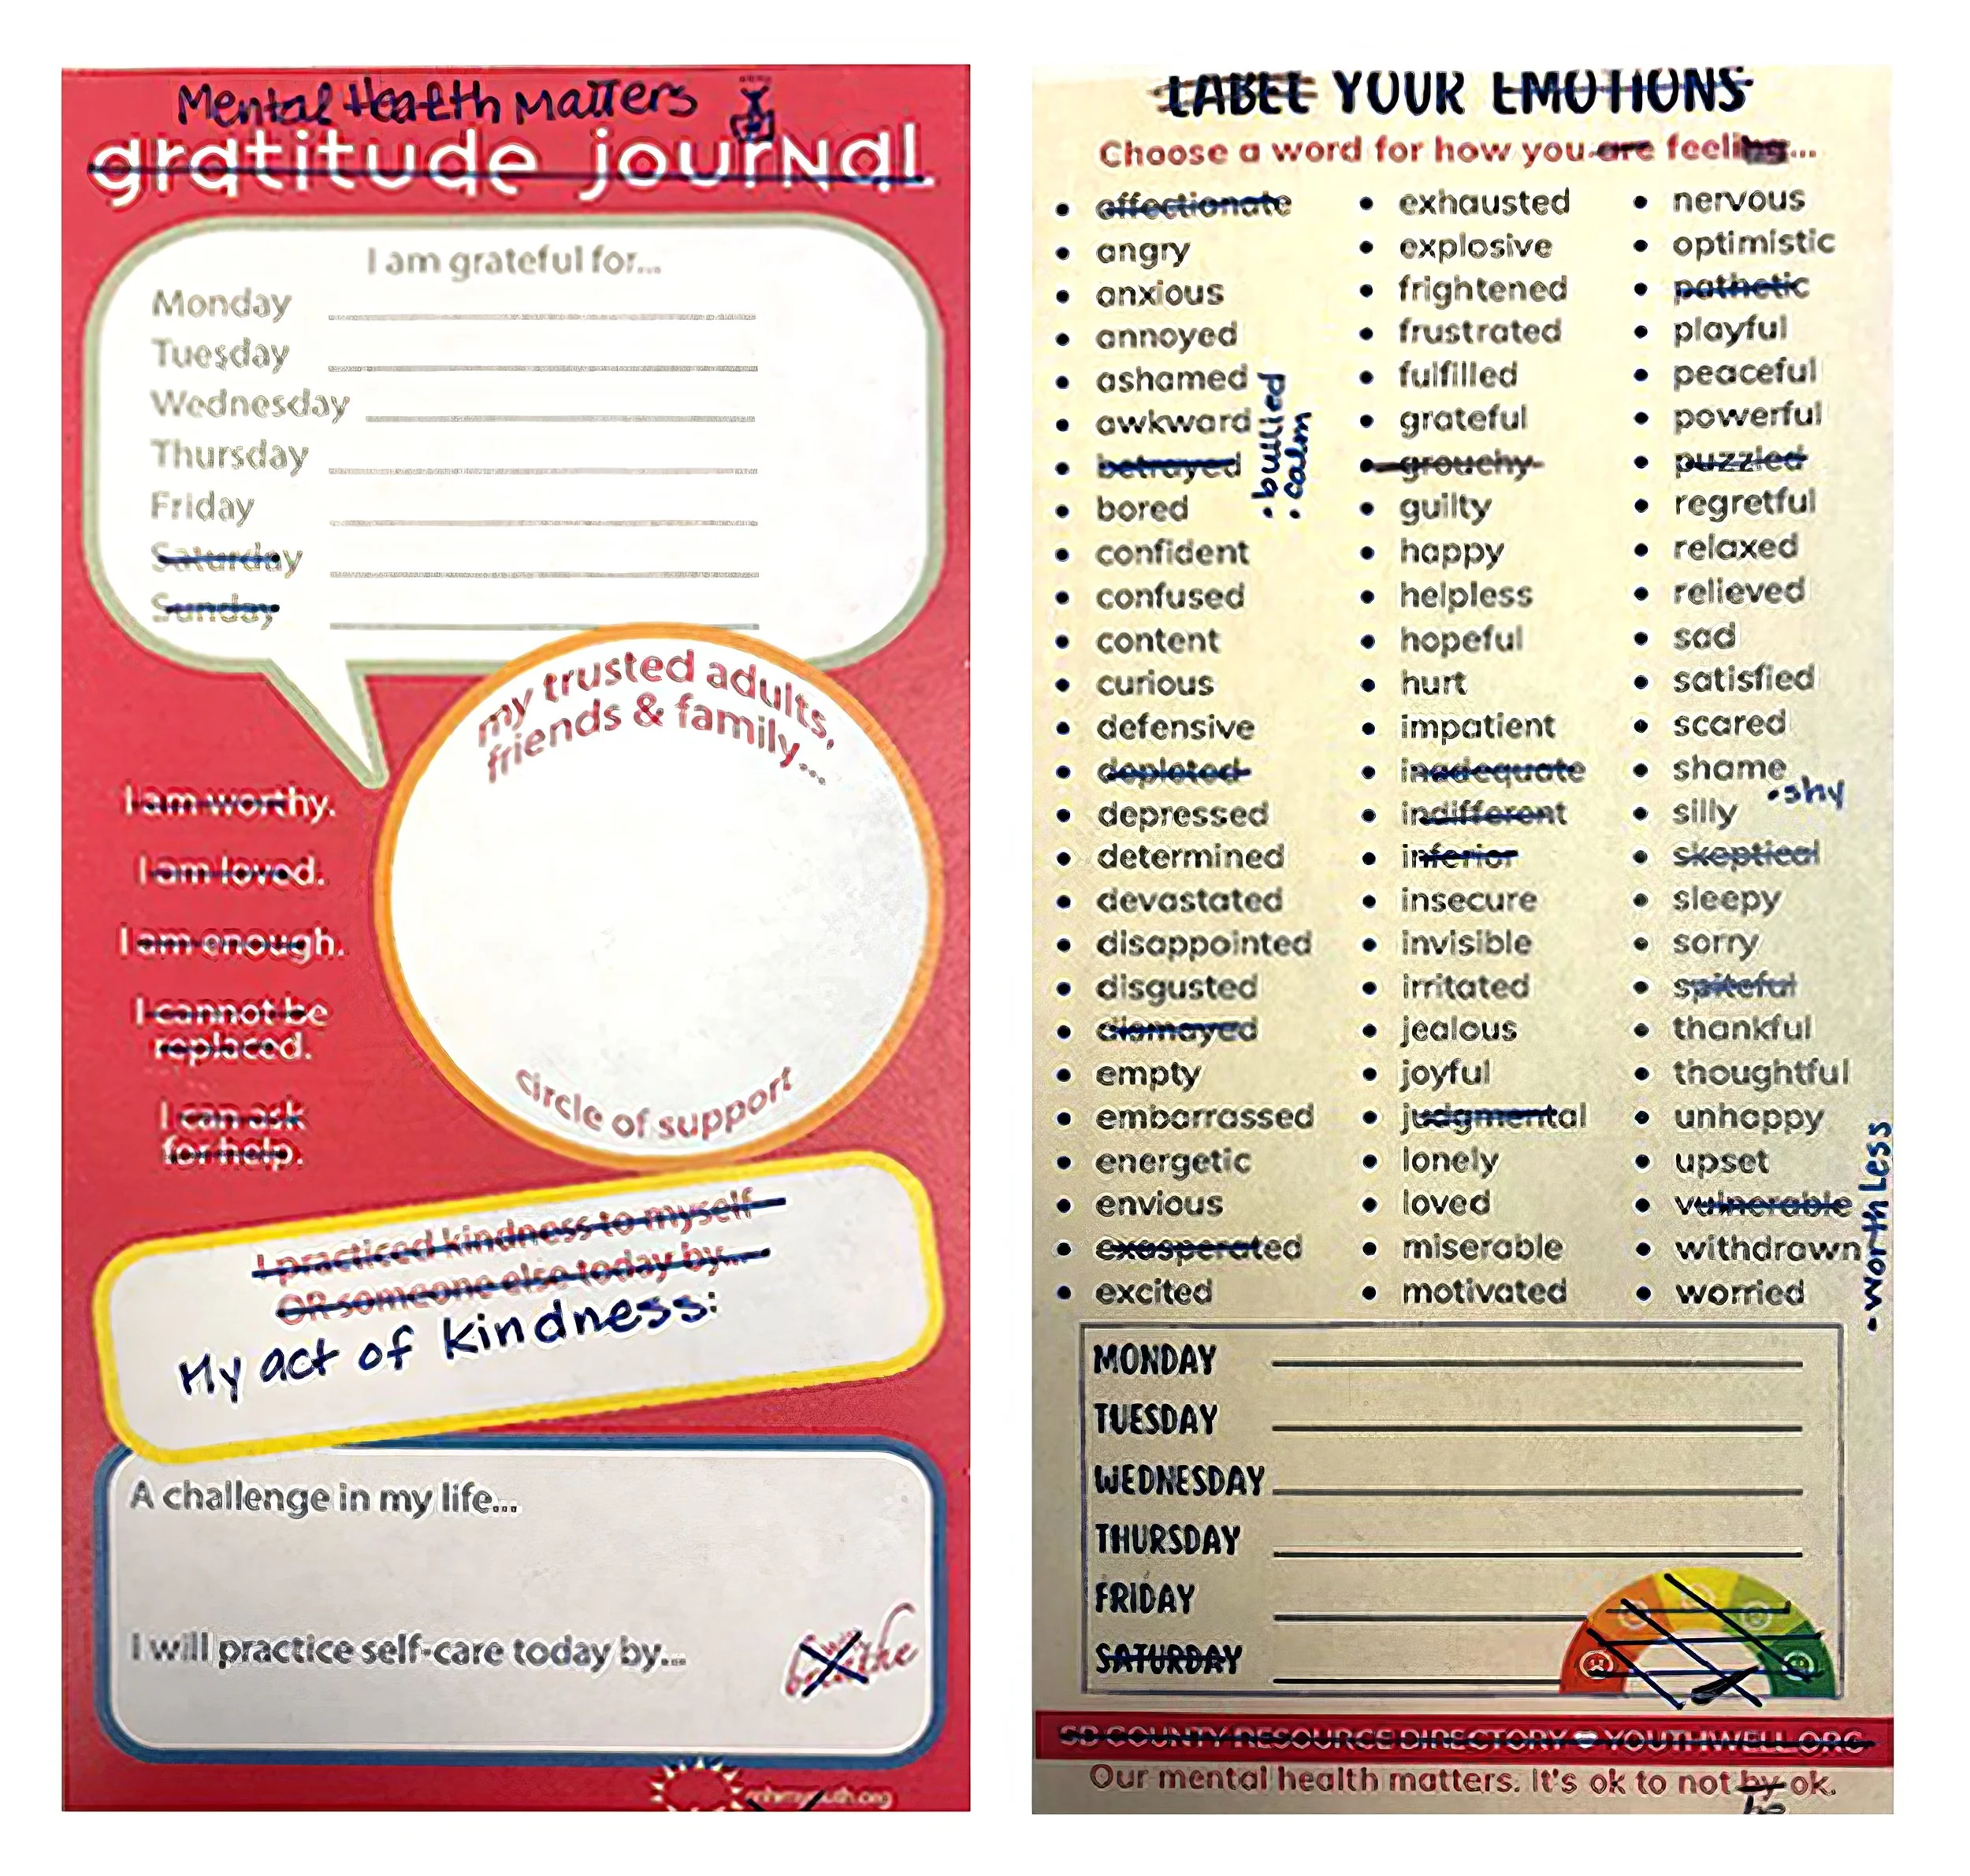 Mental Health Matters
gratitude journal
I am grateful for...
Monday
Tuesday
Wednesday
Thursday
Friday
Saturday
Sunday
my trusted adults,
friends & family...
circle of support
I am worthy.
I am loved.
I am enough.
I cannot be
replaced.
I can ask
for help.
I practiced kindness to myself
OR someone else today by...
My act of kindness:
A challenge in my life...
I will practice self-care today by...
breathe
LABEL YOUR EMOTIONS
Choose a word for how you are feeling...
affectionate
angry
anxious
annoyed
ashamed
awkward
betrayed
bored
• bullied
• calm
confident
confused
content
curious
defensive
depleted
depressed
determined
devastated
disappointed
disgusted
dismayed
empty
embarrassed
energetic
envious
exasperated
excited
exhausted
explosive
frightened
frustrated
fulfilled
grateful
grouchy
guilty
happy
helpless
hopeful
hurt
impatient
inadequate
indifferent
inferior
insecure
invisible
irritated
jealous
joyful
judgmental
lonely
loved
miserable
motivated
nervous
optimistic
pathetic
playful
peaceful
powerful
puzzled
regretful
relaxed
relieved
sad
satisfied
scared
shame
• shy
silly
skeptical
sleepy
sorry
spiteful
thankful
thoughtful
unhappy
upset
vulnerable
withdrawn
worried
- worthless
MONDAY
TUESDAY
WEDNESDAY
THURSDAY
FRIDAY
SATURDAY
SB COUNTY RESOURCE DIRECTORY YOUTHWELL.ORG
Our mental health matters. It's ok to not by ok.
be